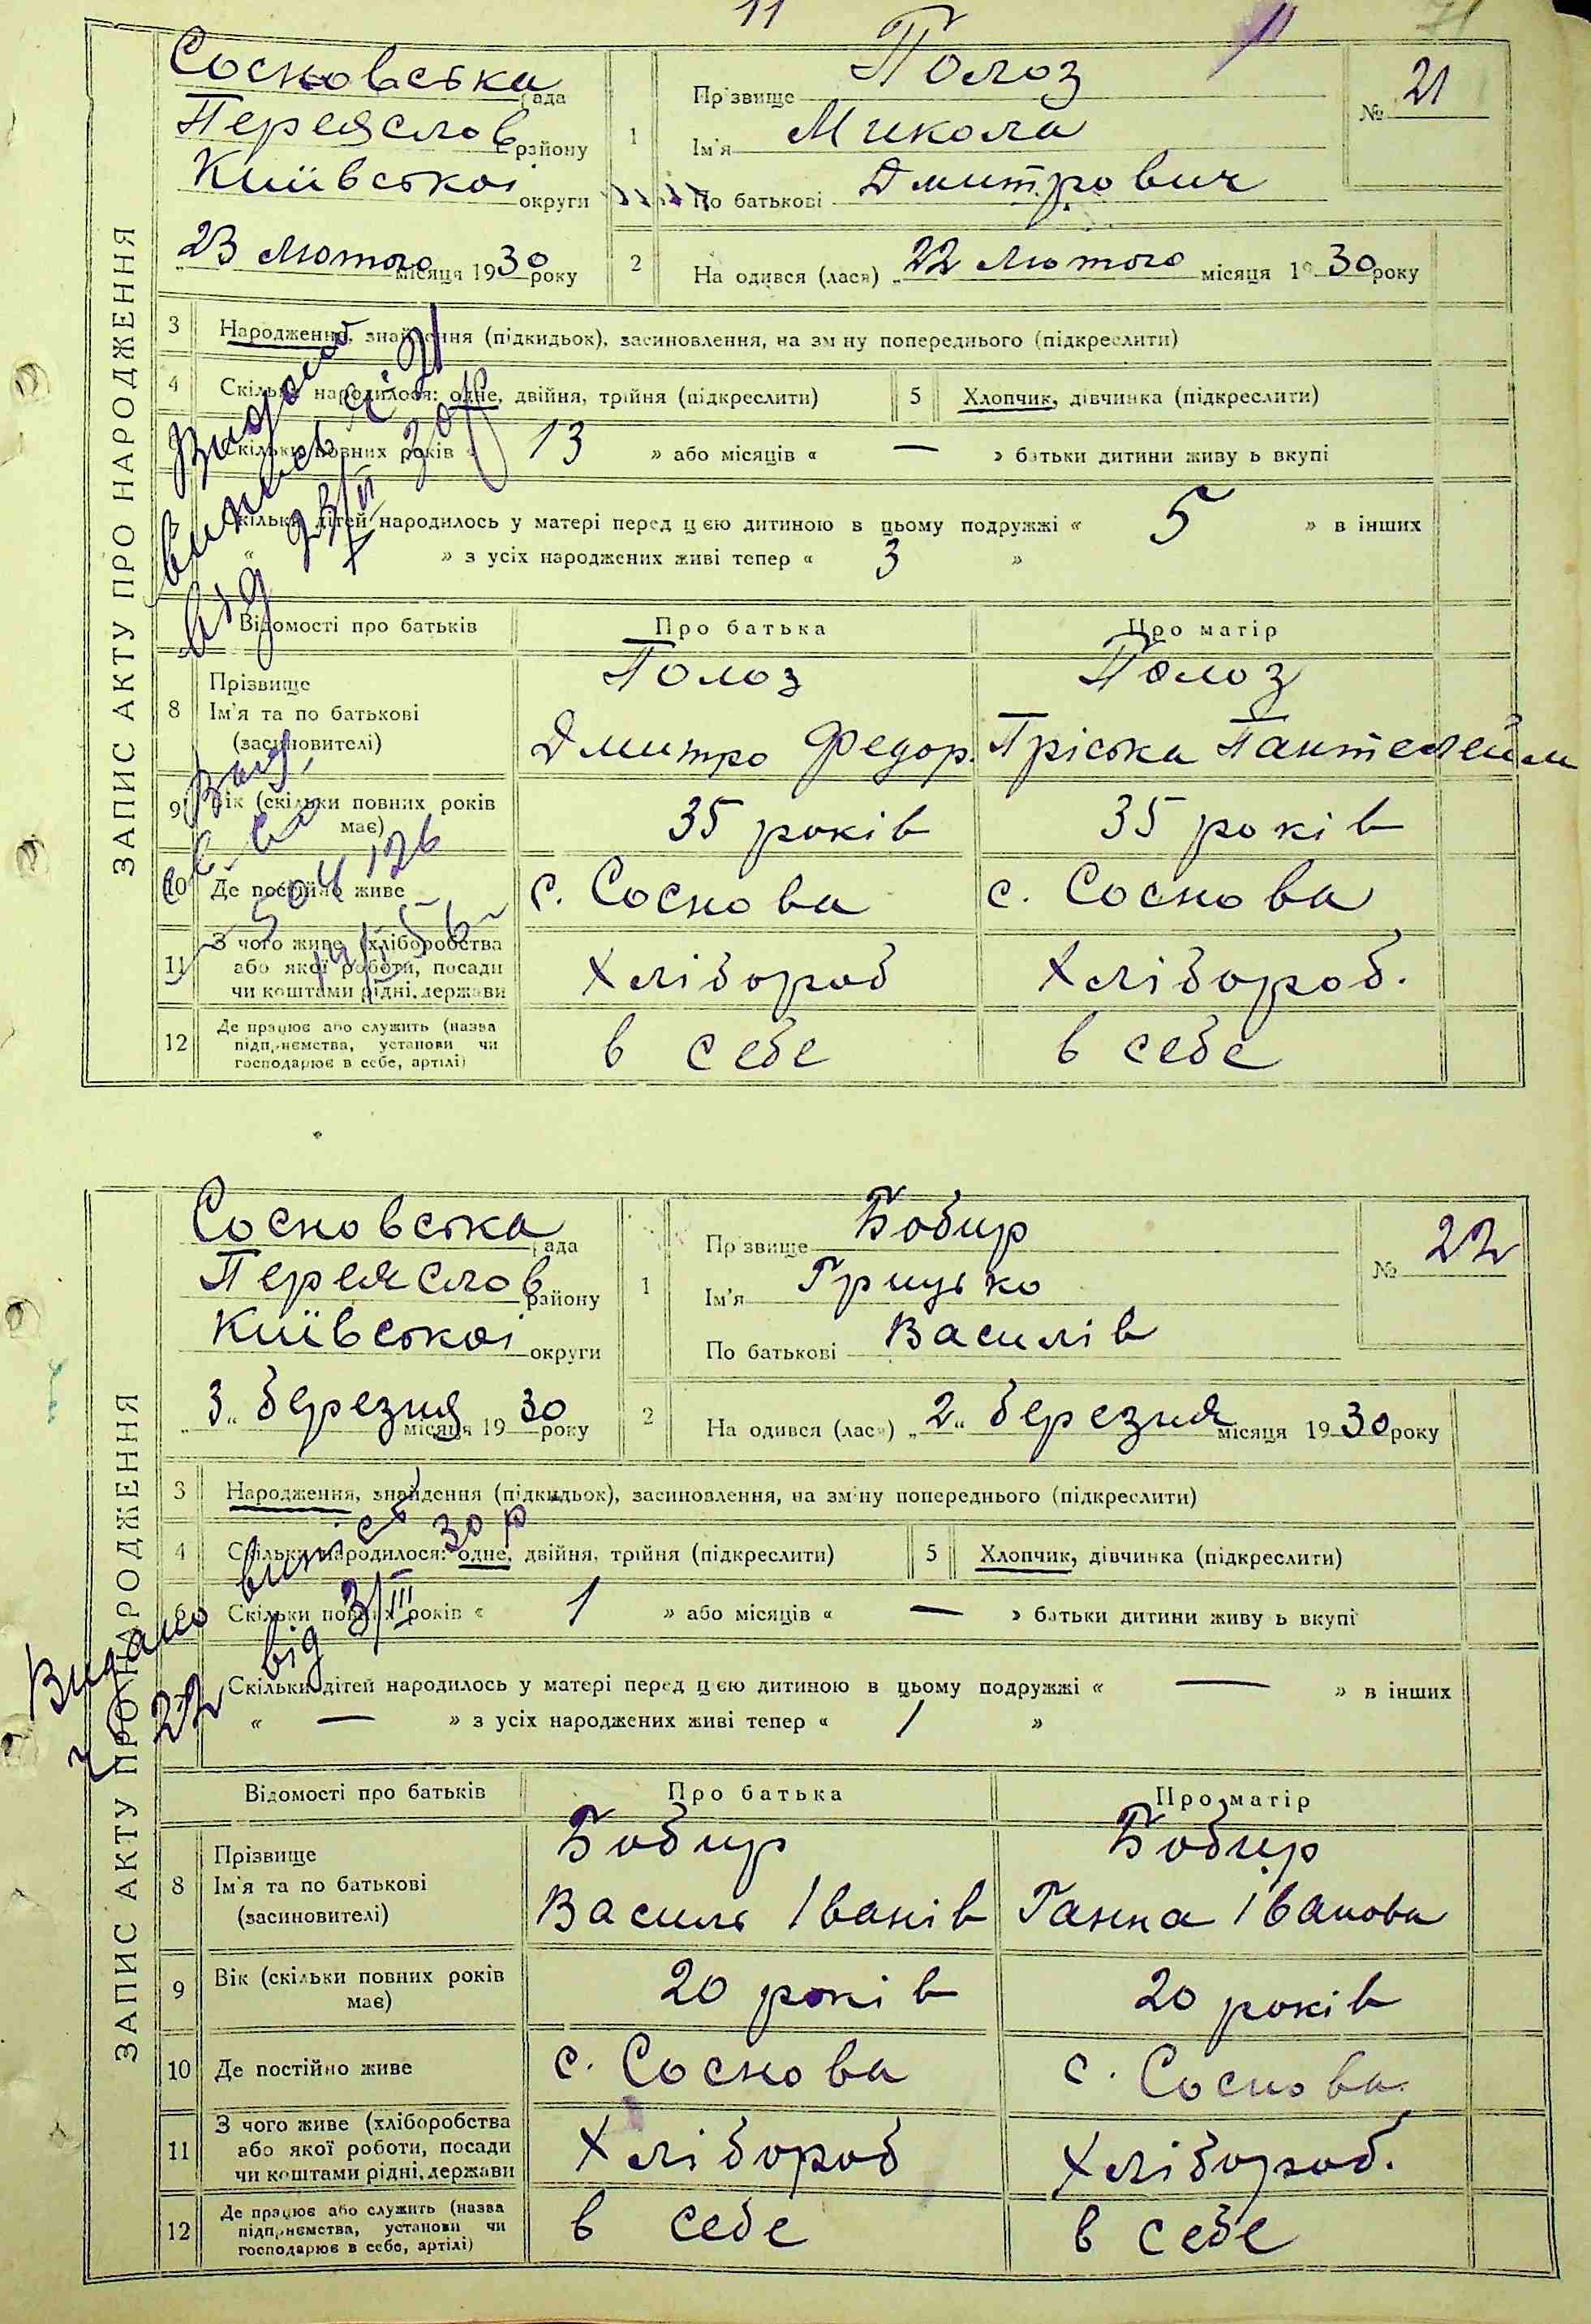 11
11
71
ЗАПИС АКТУ ПРО НАРОДЖЕННЯ
Сосновська рада
Переяслов району
Київської округи
23 лютого місяця 1930 року
1
Прізвище Полоз
Ім'я Микола
По батькові Дмитрович
№ 21
2
На одився (лася) „ 22 лютого місяця 1930 року
3 Народження, знайдення (підкидьок), засиновлення, на зміну попереднього (підкреслити)
4 Скільки народилося: одне, двійня, трійня (підкреслити)
5 Хлопчик, дівчинка (підкреслити)
Скільки повних років « 13 » або місяців « — » батьки дитини живуть вкупі
Скільки дітей народилось у матері перед цією дитиною в цьому подружжі « 5 » в інших
« » з усіх народжених живі тепер « 3 »
Видано
випись ч 21
від 23/II 30 р
Відомості про батьків
Про батька
Про матір
8 Прізвище
Ім'я та по батькові
(засиновителі)
Полоз
Дмитро Федор.
Полоз
Пріська Пантелейм
9 Вік (скільки повних років
має)
35 років
35 років
10 Де постійно живе
с. Соснова
с. Соснова
11 З чого живе (хліборобства
або якої роботи, посади
чи коштами рідні, держави
Хлібороб
Хлібороб.
12 Де працює або служить (назва
підприємства, установи чи
господарює в себе, артілі)
в себе
в себе
ЗАПИС АКТУ ПРО НАРОДЖЕННЯ
Сосновська рада
Переяслов району
Київської округи
3 „ березня місяця 1930 року
1
Прізвище Бобир
Ім'я Грицько
По батькові Василів
№ 22
2
На одився (лася) „ 2 „ березня місяця 1930 року
3 Народження, знайдення (підкидьок), засиновлення, на зміну попереднього (підкреслити)
4 Скільки народилося: одне, двійня, трійня (підкреслити)
5 Хлопчик, дівчинка (підкреслити)
6 Скільки повних років « 1 » або місяців « — » батьки дитини живуть вкупі
Скільки дітей народилось у матері перед цією дитиною в цьому подружжі « — » в інших
« — » з усіх народжених живі тепер « 1 »
Видано випись
ч 22 від 3/III 30 р
Відомості про батьків
Про батька
Про матір
8 Прізвище
Ім'я та по батькові
(засиновителі)
Бобир
Василь Іванів
Бобир
Ганна Іванова
9 Вік (скільки повних років
має)
20 років
20 років
10 Де постійно живе
с. Соснова
с. Соснова
11 З чого живе (хліборобства
або якої роботи, посади
чи коштами рідні, держави
Хлібороб
Хлібороб.
12 Де працює або служить (назва
підприємства, установи чи
господарює в себе, артілі)
в себе
в себе